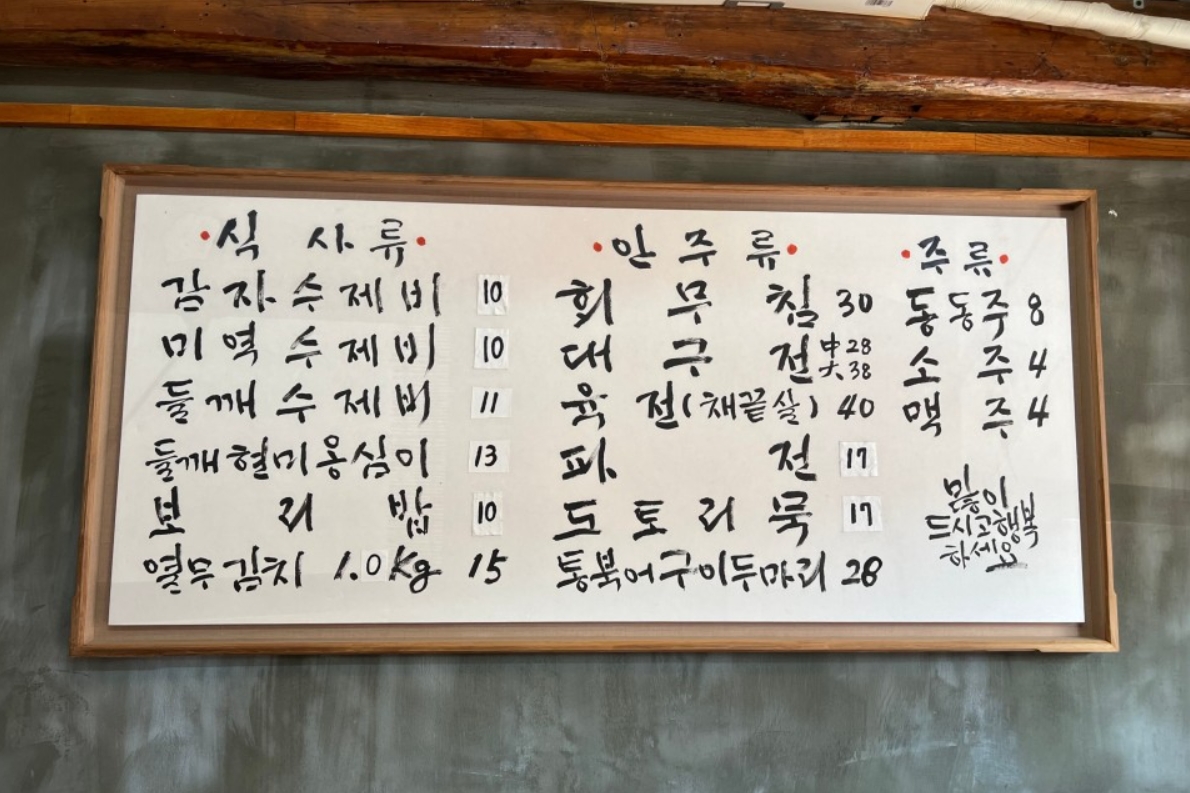 식사류
감자수제비 10
미역수제비 10
들깨수제비 11
들깨현미옹심이 13
보리밥 10
열무김치 1.0kg 15
안주류
회무침 30
대구전 中 28
大 38
육전(채끝살) 40
파전 17
도토리묵 17
통북어구이두마리 28
주류
동동주 8
소주 4
맥주 4
많이
드시고행복
하세요